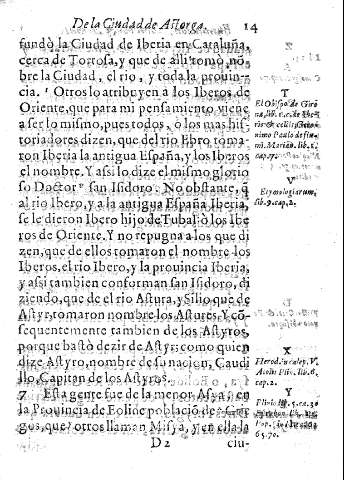 De la Ciudad de Astorga. 14
fundò la Ciudad de Iberia en Cataluña,
cerca de Tortosa, y que de alli tomò nõ-
bre la Ciudad, el rio, y toda la provin-
cia. Otros lo atribuyen a los Iberos de
Oriente, que para mi pensamiento viene
a ser lo mismo, pues todos, ò los mas his-
toriadores dizen, que del rio Ebro toma-
ron Iberia la antigua España, y los Iberos
el nombre. Y assi lo dize el mismo glorio
so Doctor san Isidoro. No obstante, q̃
al rio Ibero, y a la antigua España Iberia,
se le dieron Ibero hijo de Tubal ò los Ibe
ros de Oriente. Y no repugna a los que di
zen, que de ellos tomaron el nombre los
Iberos, el rio Ibero, y la provincia Iberia,
y assi tambien conforman san Isidoro, di
ziendo, que el rio Astura, y Silio que de
Astyr, tomaron nombre los Astures. Y cõ-
sequentemente tambien de los Astyros,
porque bastò dezir de Astyr; como quien
dize Astyro, nombre de su nacion, Caudi
llo Capitan de los Astyros.
7 Esta gente fue de la menor Asya, en
la Provincia de Eolide poblaciõ de Grie
gos, que otros llaman Misya, y en ella la
D 2 ciu-
T
El Obispo de Giro
na, lib.
nimo Paulo de flu-
mi. Marian. lib. 1.
cap. 7.
V
Etymologiarum,
lib. 9. cap. 2.
X
Herod. in calep. V.
Plin. lib. 6.
cap. 2.
Y
Plinio lib. 5. ca. 30
65. 70.